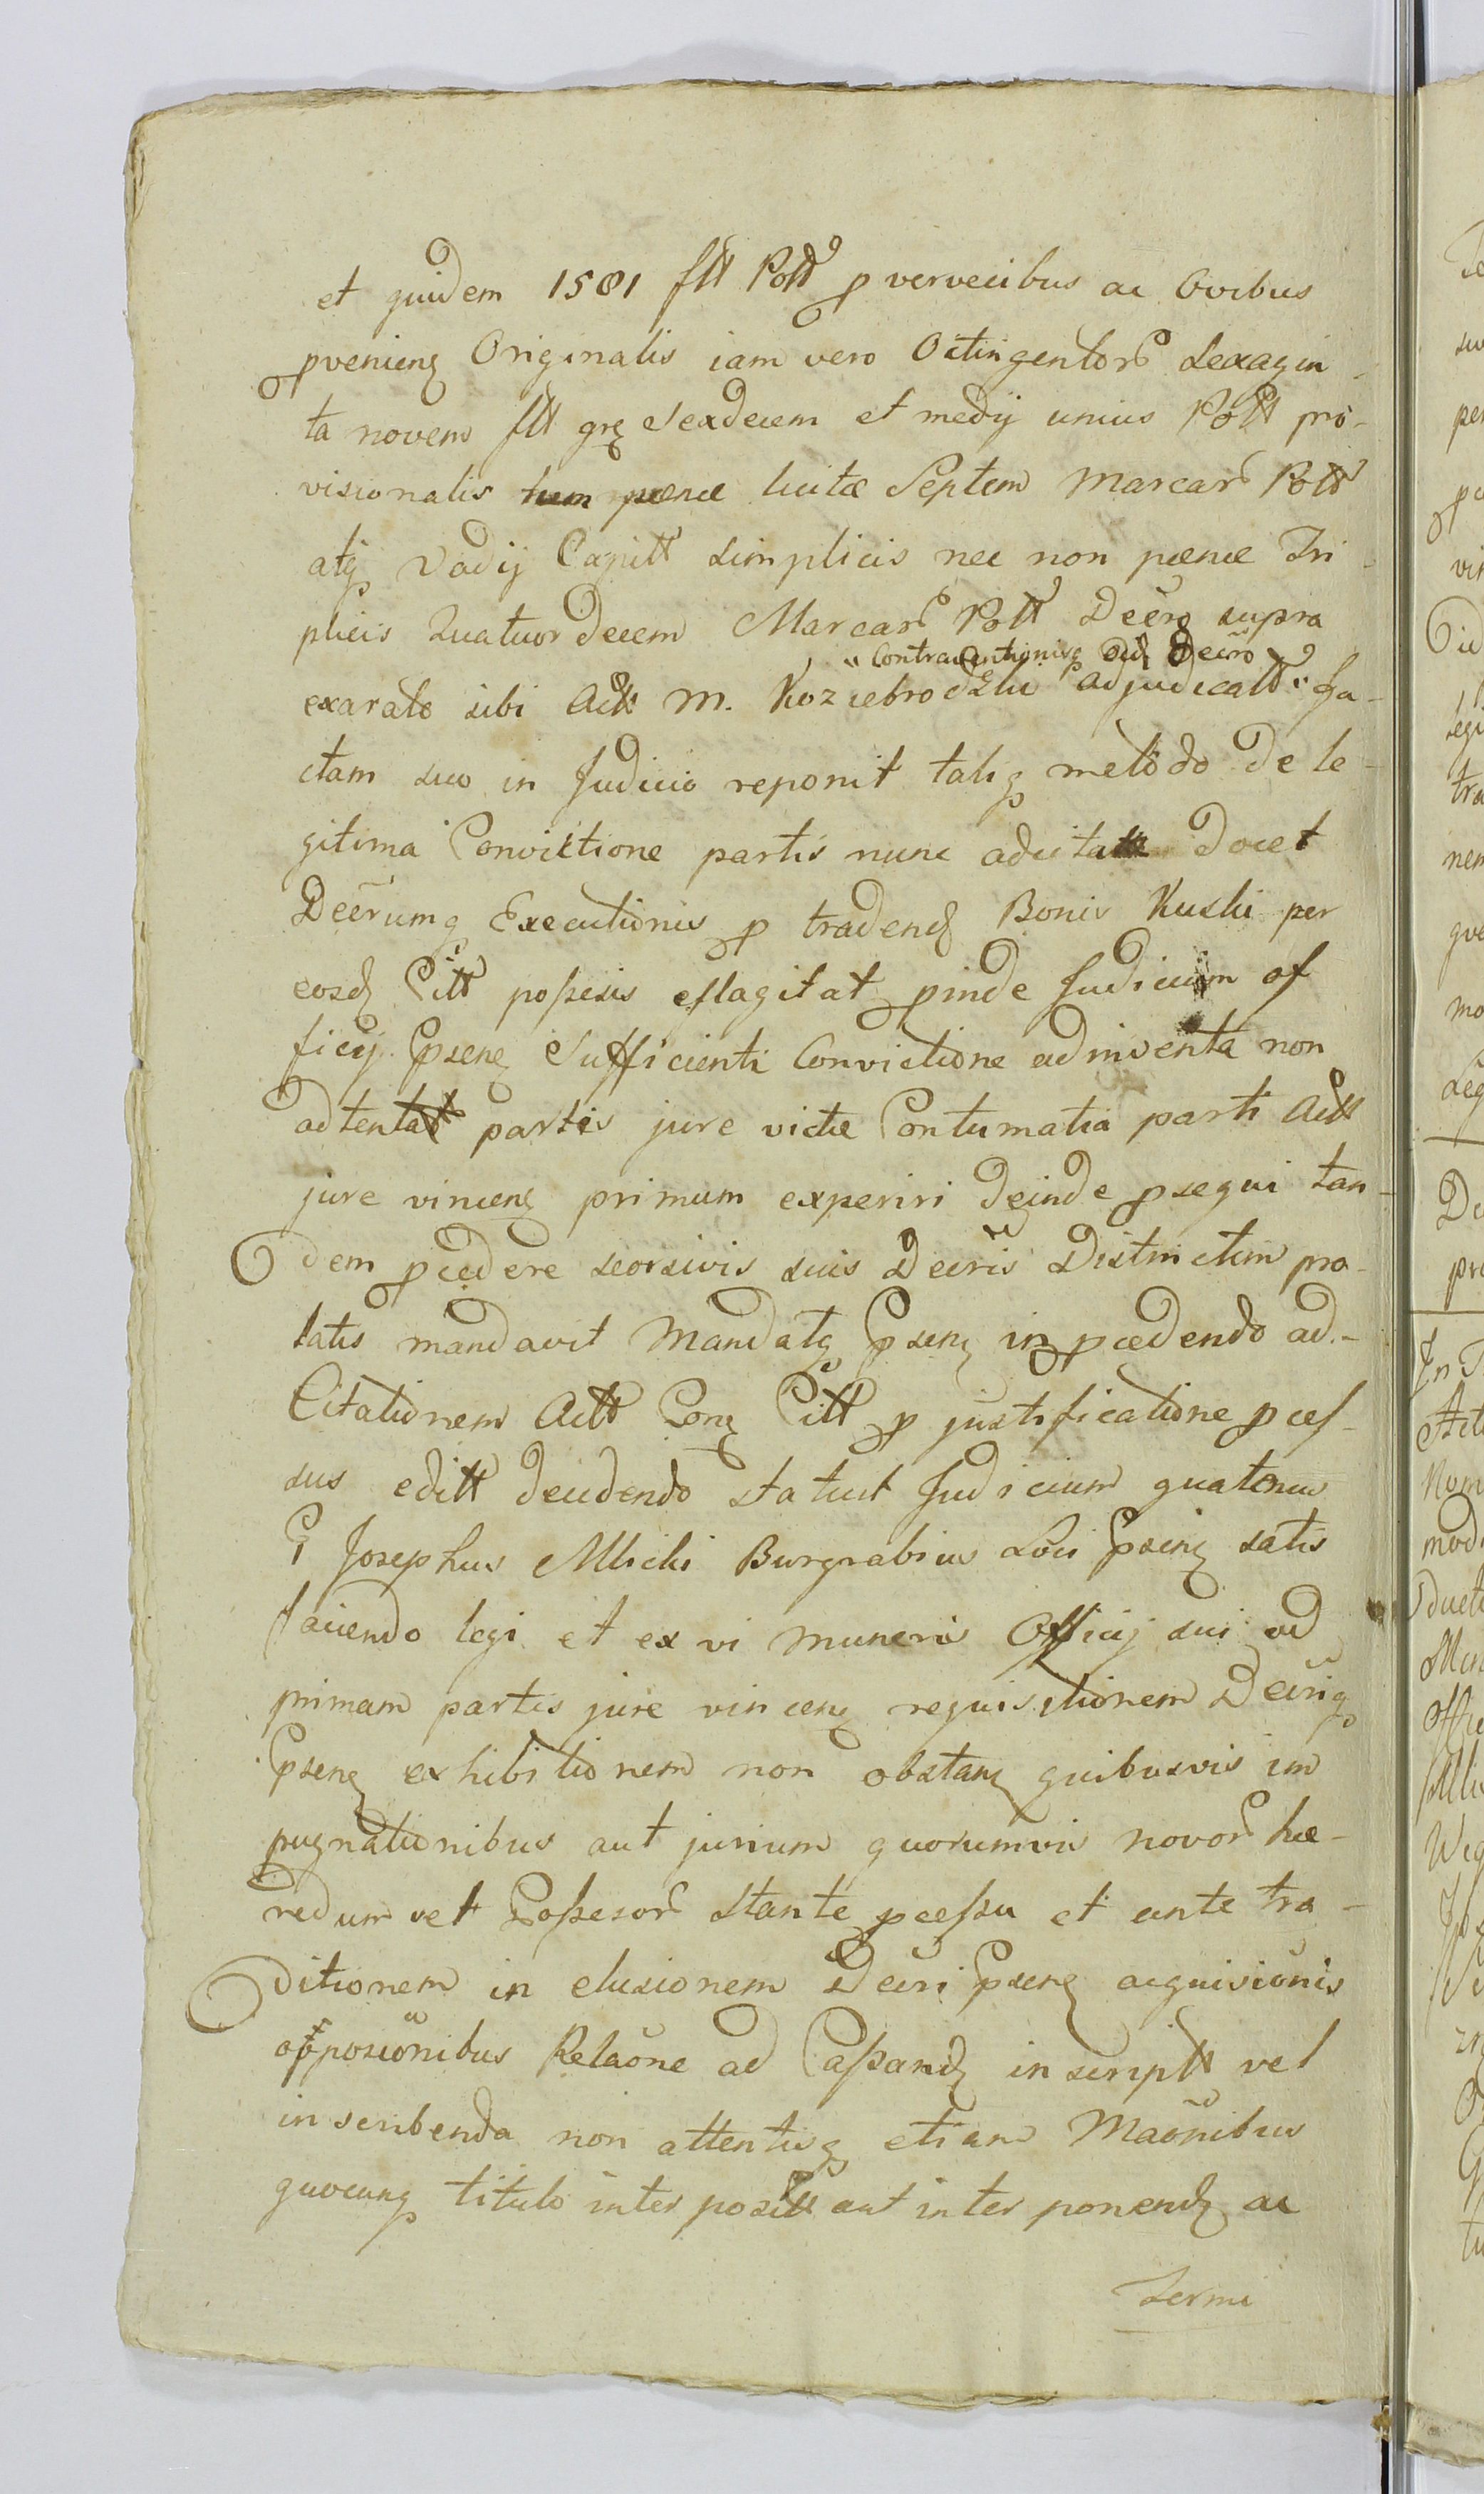 et quidem 1581 fltt Poltt p vervecibus ac Ovibus
pvenienȩ Originalis iam vero Octingentorꝭ Sexagin-
ta novem fltt grȩ Sexdecem et medij unius Poltt pro-
visionalis tum pænæ luitæ Septem Marcarꝭ Poltt
atqȩ Vadij Capitt simplicis nec non pænæ Tri-
plicis Quatuordecem Marcarꝭ Poltt Decro supra
" Contraventionisqȩ Decro
exarato sibi Actt M. Koziebrodzki adjudicatt " Ja-
ctam suo in Judicio reponit taliqȩ metodo de le-
gitima Convictione partis nunc adcitatæ docet
Decrumqȩ Executionis p tradendȩ Bonis Kuski per
eosdȩ Citt possessis eflagitat pinde Judicium of
ficij pseneȩ Sufficienti Convictione adinventa non
adtentat partis jure victæ Contumatia parti Actt
jure vincenȩ primum experiri deinde psequi tan-
dem pcedere seorsivis suis Decris Distinctim pro-
latis mandavit Mandatqȩ psenȩ in pcedendo ad-
Citationem Actt Conȩ Citt p justificatione pces-
sus editt decidendo statuit Judicium quatenus
G Josephus Mlicki Burgrabius Loci psenȩ satis
faciendo legi et ex vi muneris Officij sui ad
primam partis jure vincenȩ requisitionem Decriqȩ
psenȩ exhibitionem non obstanȩ quibusvis im
pugnationibus aut jurium quorumvis novorꝭ hæ-
redum vel Possesorꝭ stante pcessu et ante tra-
ditionem in elusionem Decri psenȩ acquisionis
oppositionibus Relaõne ad Cassandȩ inscriptt vel
inscribenda non attentisqȩ etiam Maõnibus
quocunqȩ titulo interpositt aut interponendȩ ac
Termi